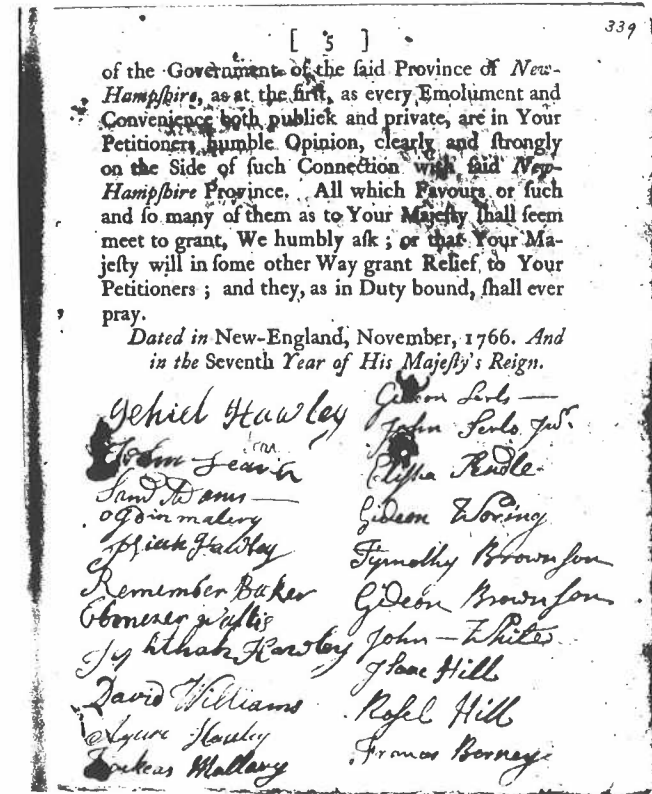 339
[ 5 ]
of the Government of the ſaid Province of New-
Hampſhire, as at the firſt, as every Emolument and
Convenience both publick and private, are in Your
Petitioners humble Opinion, clearly and ſtrongly
on the Side of ſuch Connection with ſaid New-
Hampſhire Province. All which Favours or ſuch
and ſo many of them as to Your Majeſty ſhall ſeem
meet to grant, We humbly aſk ; or that Your Ma-
jeſty will in ſome other Way grant Relief, to Your
Petitioners ; and they, as in Duty bound, ſhall ever
pray.
Dated in New-England, November, 1766. And
in the Seventh Year of His Majeſty's Reign.
Jehiel Hawley
John
Samll Adams
malery
Josiah Hawley
Remember Baker
Ebenezer Wallis
Hawley
David Williams
Hawley
Mallary
Gideon Serls
John Serls Junr.
Elisha
Gideon Woring
Tymothy Brownson
Gideon Brownson
John White
Isaac Hill
Rosel Hill
Francis